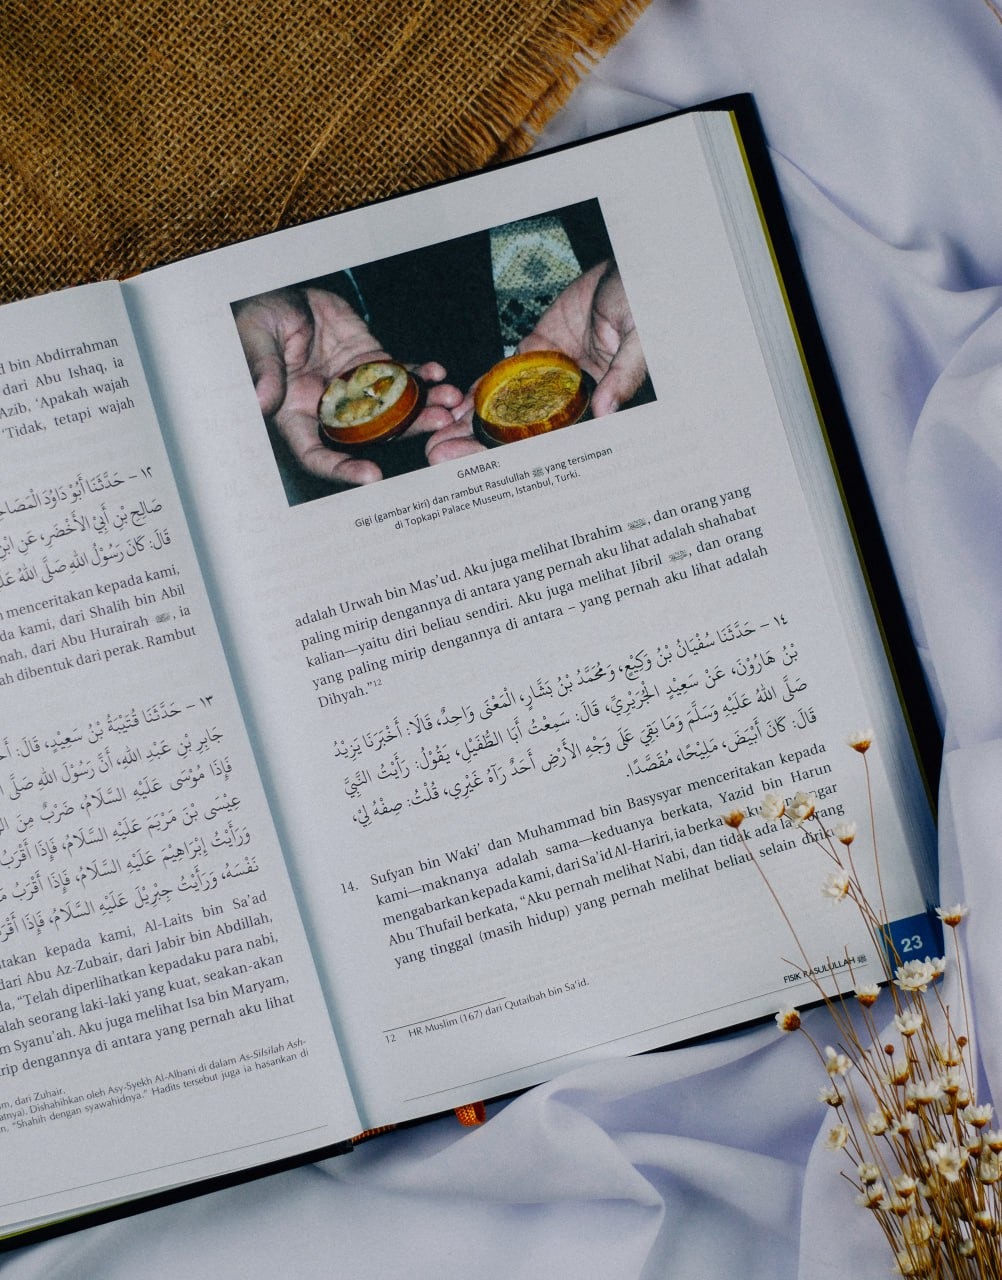 d bin Abdirrahman
dari Abu Ishaq, ia
Azib, ‘Apakah wajah
‘Tidak, tetapi wajah
١٢ – حَدَّثَنَا أَبُوْ دَاوُدَ الْمَصَاحِ
صَالِحِ بْنِ أَبِيْ الأَخْضَرِ، عَنِ ابْنِ
قَالَ: كَانَ رَسُوْلُ اللهِ صَلَّى اللهُ عَلَ
menceritakan kepada kami,
da kami, dari Shalih bin Abil
mah, dari Abu Hurairah ﷺ, ia
ah dibentuk dari perak. Rambut
١٣ – حَدَّثَنَا قُتَيْبَةُ بْنُ سَعِيْدٍ، قَالَ:
جَابِرِ بْنِ عَبْدِ اللهِ، أَنَّ رَسُوْلَ اللهِ صَلَّى
فَإِذَا مُوْسَى عَلَيْهِ السَّلَامُ، ضَرْبٌ مِنَ
عِيْسَى بْنَ مَرْيَمَ عَلَيْهِ السَّلَامُ، فَإِذَا أَقْرَبُ
وَرَأَيْتُ إِبْرَاهِيْمَ عَلَيْهِ السَّلَامُ، فَإِذَا أَقْرَبُ
نَفْسَهُ، وَرَأَيْتُ جِبْرِيْلَ عَلَيْهِ السَّلَامُ، فَإِذَا
takan kepada kami, Al-Laits bin Sa'ad
dari Abu Az-Zubair, dari Jabir bin Abdillah,
da, “Telah diperlihatkan kepadaku para nabi,
alah seorang laki-laki yang kuat, seakan-akan
m Syanu'ah. Aku juga melihat Isa bin Maryam,
rip dengannya di antara yang pernah aku lihat
m, dari Zuhair.
atnya). Dishahihkan oleh Asy-Syekh Al-Albani di dalam As-Silsilah Ash-
n, “Shahih dengan syawahidnya.” Hadits tersebut juga ia hasankan di
GAMBAR:
Gigi (gambar kiri) dan rambut Rasulullah ﷺ yang tersimpan
di Topkapi Palace Museum, Istanbul, Turki.
adalah Urwah bin Mas'ud. Aku juga melihat Ibrahim, dan orang yang
paling mirip dengannya di antara yang pernah aku lihat adalah shahabat
kalian—yaitu diri beliau sendiri. Aku juga melihat Jibril, dan orang
yang paling mirip dengannya di antara – yang pernah aku lihat adalah
Dihyah.”12
١٤ – حَدَّثَنَا سُفْيَانُ بْنُ وَكِيْعٍ، وَمُحَمَّدُ بْنُ بَشَّارٍ، الْمَعْنَى وَاحِدٌ، قَالَا: أَخْبَرَنَا يَزِيْدُ
بْنُ هَارُوْنَ، عَنْ سَعِيْدٍ الْجُرَيْرِيِّ، قَالَ: سَمِعْتُ أَبَا الطُّفَيْلِ، يَقُوْلُ: رَأَيْتُ النَّبِيَّ
صَلَّى اللهُ عَلَيْهِ وَسَلَّمَ وَمَا بَقِيَ عَلَى وَجْهِ الأَرْضِ أَحَدٌ رَآهُ غَيْرِيْ، قُلْتُ: صِفْهُ لِيْ،
قَالَ: كَانَ أَبْيَضَ، مَلِيْحًا، مُقَصَّدًا.
14. Sufyan bin Waki' dan Muhammad bin Basysyar menceritakan kepada
kami—maknanya adalah sama—keduanya berkata, Yazid bin Harun
mengabarkan kepada kami, dari Sa'id Al-Hariri, ia berkata,
Abu Thufail berkata, “Aku pernah melihat Nabi, dan tidak ada lagi orang
yang tinggal (masih hidup) yang pernah melihat beliau selain diriku
12 HR Muslim (167) dari Qutaibah bin Sa'id.
FISIK RASULULLAH ﷺ
23